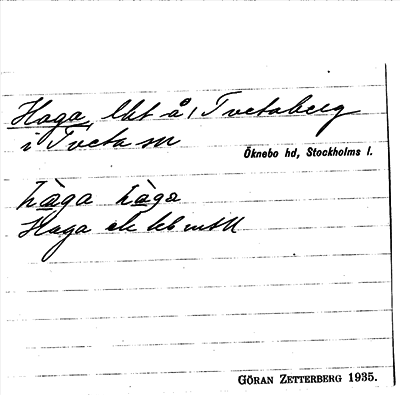 Haga, lht å Tvetaberg
i Tveta sn
Öknebo hd, Stockholms l.
hàga hàga
Haga ek leb mtll
GÖRAN ZETTERBERG 1935.